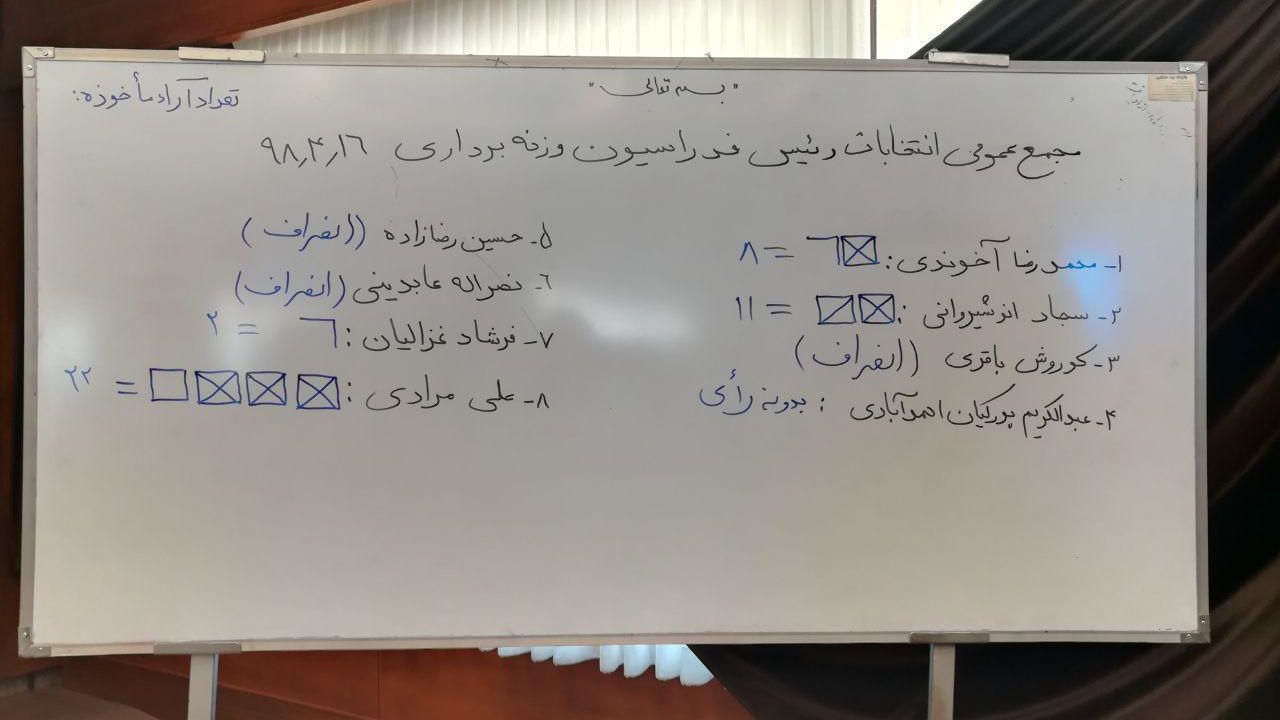 "بسمه تعالی"
تعداد آراء مأخوذه:
مجمع عمومی انتخابات رئیس فدراسیون وزنه برداری ۹۸٫۴٫۱۶
۱- محمدرضا آخوندی: = ۸
۲- سجاد انوشیروانی: = ۱۱
۳- کوروش باقری (انصراف)
۴- عبدالکریم پورکیان احمدآبادی: بدون رأی
۵- حسین رضازاده (انصراف)
۶- نصراله عابدینی (انصراف)
۷- فرشاد غزالیان: = ۲
۸- علی مرادی: = ۲۲